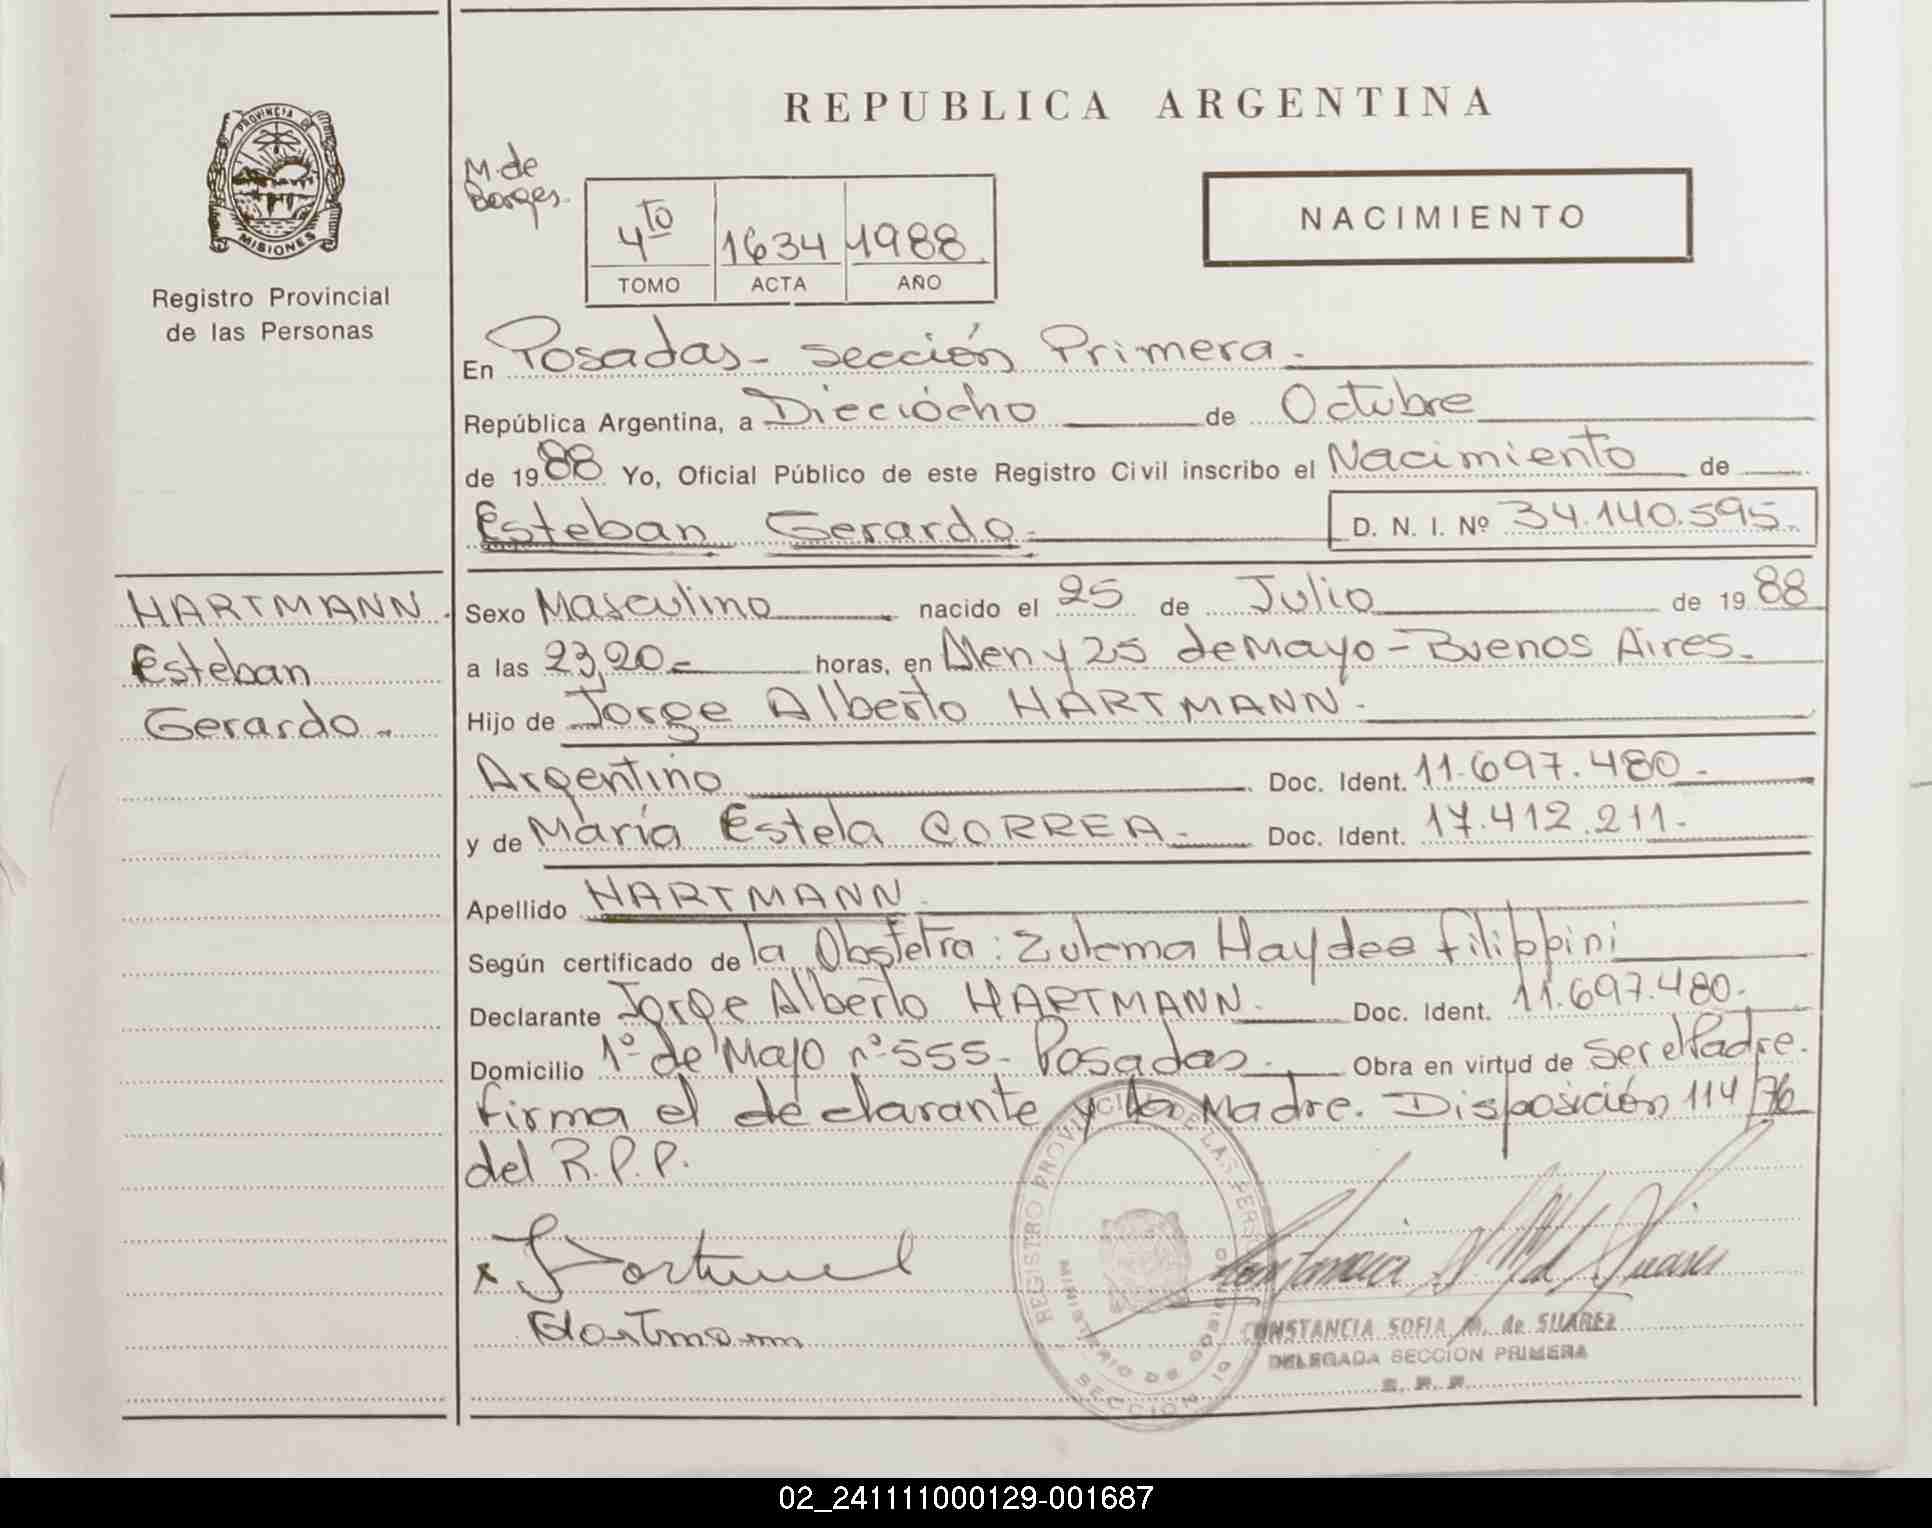 REPUBLICA ARGENTINA
PROVINCIA DE
MISIONES
Registro Provincial
de las Personas
M. de
Borges.
4to 1634 1988.
TOMO ACTA AÑO
NACIMIENTO
En Posadas - Sección Primera.
República Argentina, a Dieciócho de Octubre
de 1988 Yo, Oficial Público de este Registro Civil inscribo el Nacimiento de
Esteban Gerardo.- D. N. I. Nº 34.140.595.
HARTMANN.
Esteban
Gerardo.
Sexo Masculino nacido el 25 de Julio de 1988
a las 23,20.- horas, en Alen y 25 de Mayo - Buenos Aires.
Hijo de Jorge Alberto HARTMANN.
Argentino Doc. Ident. 11.697.480.-
y de María Estela CORREA.- Doc. Ident. 17.412.211.-
Apellido HARTMANN.
Según certificado de la Obstetra: Zulema Haydee Filippini
Declarante Jorge Alberto HARTMANN. Doc. Ident. 11.697.480.
Domicilio 1º de Mayo nº 555.- Posadas.- Obra en virtud de Ser el Padre.
Firma el declarante y la Madre. Disposición 114/76
del R.P.P.
x
Hartmann
REGISTRO PROVINCIAL DE LAS PERSONAS
MINISTERIO DE GOBIERNO
SECCION 1º
CONSTANCIA SOFIA M. de SUAREZ
DELEGADA SECCION PRIMERA
02_241111000129-001687